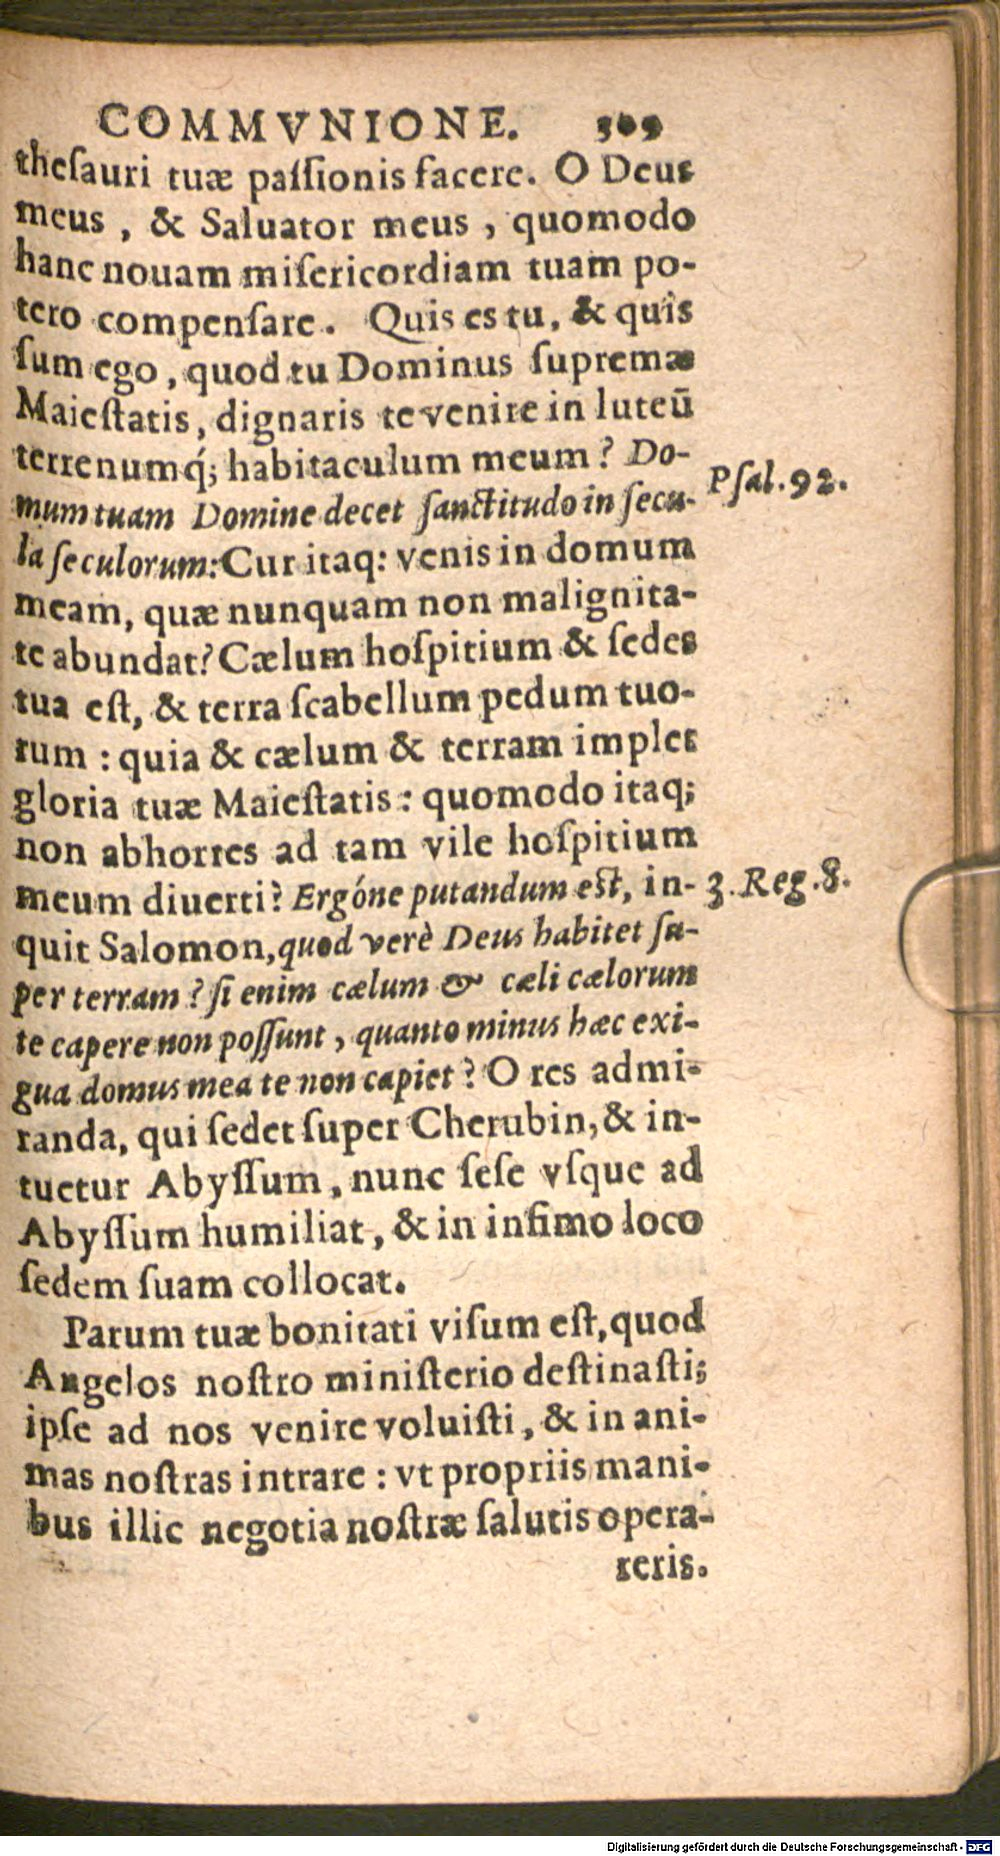 COMMVNIONE. 509
theſauri tuæ paſſionis facere. O Deus
meus, & Saluator meus, quomodo
hanc nouam miſericordiam tuam po-
tero compenſare. Quis es tu, & quis
ſum ego, quod tu Dominus ſupremæ
Maieſtatis, dignaris te venire in luteū
terrenumq́; habitaculum meum? Do-
mum tuam Domine decet ſanctitudo in ſecu-
Pſal. 92.
la ſeculorum: Cur itaq: venis in domum
meam, quæ nunquam non malignita-
te abundat? Cælum hoſpitium & ſedes
tua eſt, & terra ſcabellum pedum tuo-
rum: quia & cælum & terram implet
gloria tuæ Maieſtatis: quomodo itaq;
non abhorres ad tam vile hoſpitium
meum diuerti? Ergóne putandum eſt, in-
3. Reg. 8.
quit Salomon, quod verè Deus habitet ſu-
per terram? ſi enim cælum & cæli cælorum
te capere non poſſunt, quanto minus hæc exi-
gua domus mea te non capiet? O res admi-
randa, qui ſedet ſuper Cherubin, & in-
tuetur Abyſſum, nunc ſeſe vſque ad
Abyſſum humiliat, & in infimo loco
ſedem ſuam collocat.
Parum tuæ bonitati viſum eſt, quod
Angelos noſtro miniſterio deſtinaſti;
ipſe ad nos venire voluiſti, & in ani-
mas noſtras intrare: vt propriis mani-
bus illic negotia noſtræ ſalutis opera-
reris.
Digitalisierung gefördert durch die Deutsche Forschungsgemeinschaft - DFG